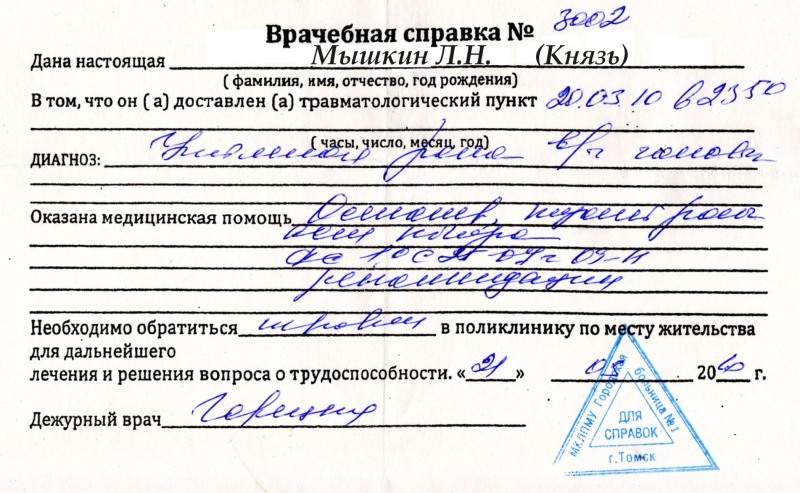 Врачебная справка № 3002
Дана настоящая Мышкин Л.Н. (Князь)
( фамилия, имя, отчество, год рождения)
В том, что он ( а) доставлен (а) травматологический пункт 20.03.10 в 23 50
( часы, число, месяц, год)
ДИАГНОЗ: Ушибленная рана в/ч головы
Оказана медицинская помощь Осмотр, туалет раны
рекомендации
Необходимо обратиться в поликлинику по месту жительства
для дальнейшего
лечения и решения вопроса о трудоспособности. « 21 » 20 10 г.
Дежурный врач
МКЛПМУ Городская больница № 1
ДЛЯ
СПРАВОК
г. Томск